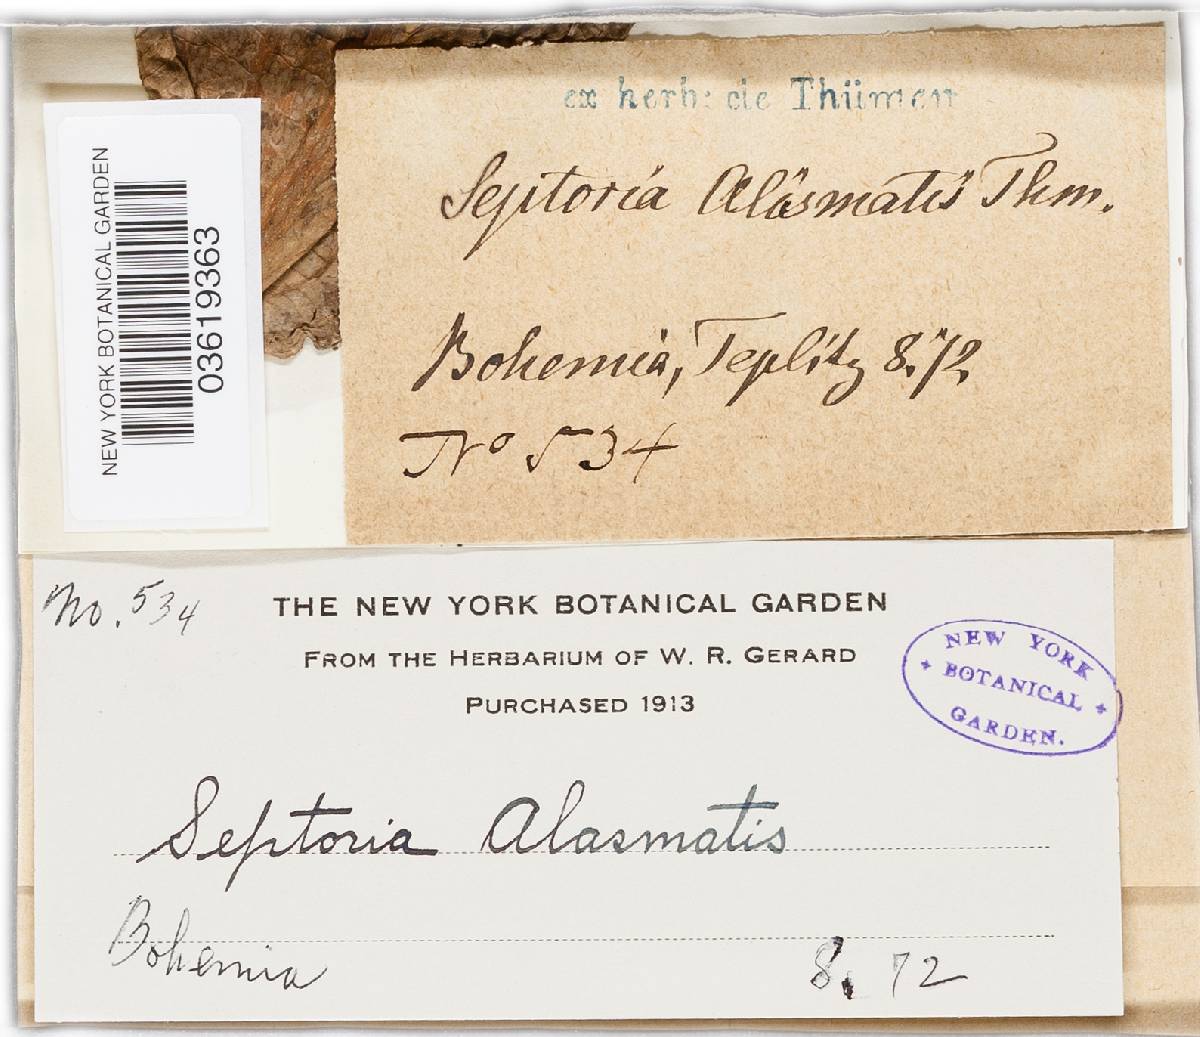 ex herb: de Thümen
Septoria Alasmatis Thm.
Bohemia, Teplitz 8.72
No 534
NEW YORK BOTANICAL GARDEN
03619363
No. 534
THE NEW YORK BOTANICAL GARDEN
FROM THE HERBARIUM OF W. R. GERARD
PURCHASED 1913
NEW YORK
+ BOTANICAL +
GARDEN.
Septoria Alasmatis
Bohemia
8. 72